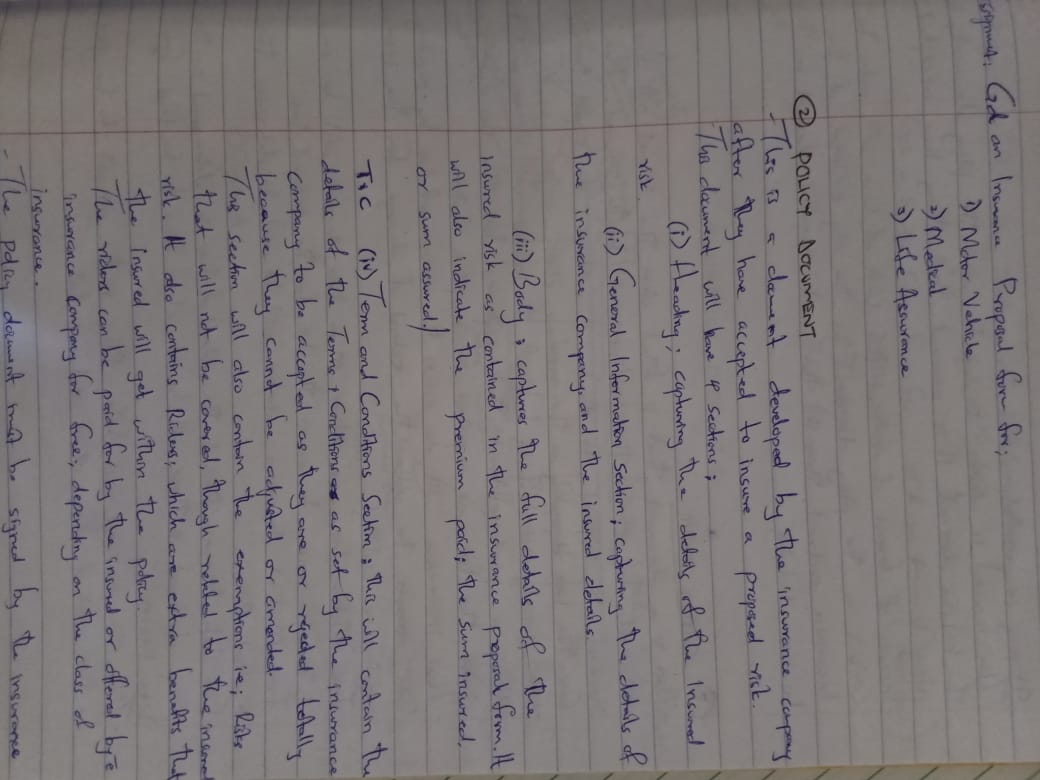 Get an Insurance Proposal form for;
1) Motor Vehicle
2) Medical
3) Life Assurance
② POLICY DOCUMENT
- This is a document developed by the insurance company
after they have accepted to insure a proposed risk.
- This document will have 4 sections;
(i) Heading; capturing the details of the Insured
risk.
(ii) General Information Section; capturing the details of
the insurance company, and the insured details
(iii) Body; captures the full details of the
insured risk as contained in the insurance proposal form. It
will also indicate the premium paid; the sum insured,
or sum assured.
T&C (iv) Term and Conditions Section; this will contain the
details of the Terms & Conditions as set by the insurance
company to be accepted as they are or rejected totally
because they cannot be adjusted or amended.
- This section will also contain the exemptions ie; Risks
that will not be covered, though related to the insured
risk. It also contains Riders, which are extra benefits that
the insured will get within the policy.
- The riders can be paid for by the insured or offered by
insurance company for free, depending on the class of
insurance.
- The policy document must be signed by the insurance